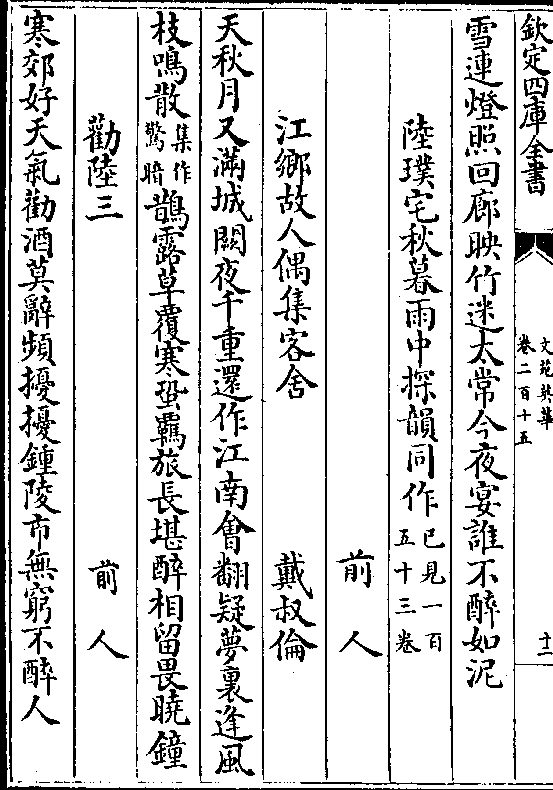 欽定四庫全書
文苑英華
卷二百十五
十二
雪連燈照回廊映竹迷太常今夜宴誰不醉如泥
陸璞宅秋暮雨中探韻同作已見一百五十三卷
前人
江鄉故人偶集客舍
戴叔倫
天秋月又滿城闕夜千重還作江南會翻疑夢裏逢風
枝鳴散集作驚暗鵲露草覆寒蛩羈旅長堪醉相留畏曉鐘
勸陸三
前人
寒郊好天氣勸酒莫辭頻擾擾鍾陵市無窮不醉人